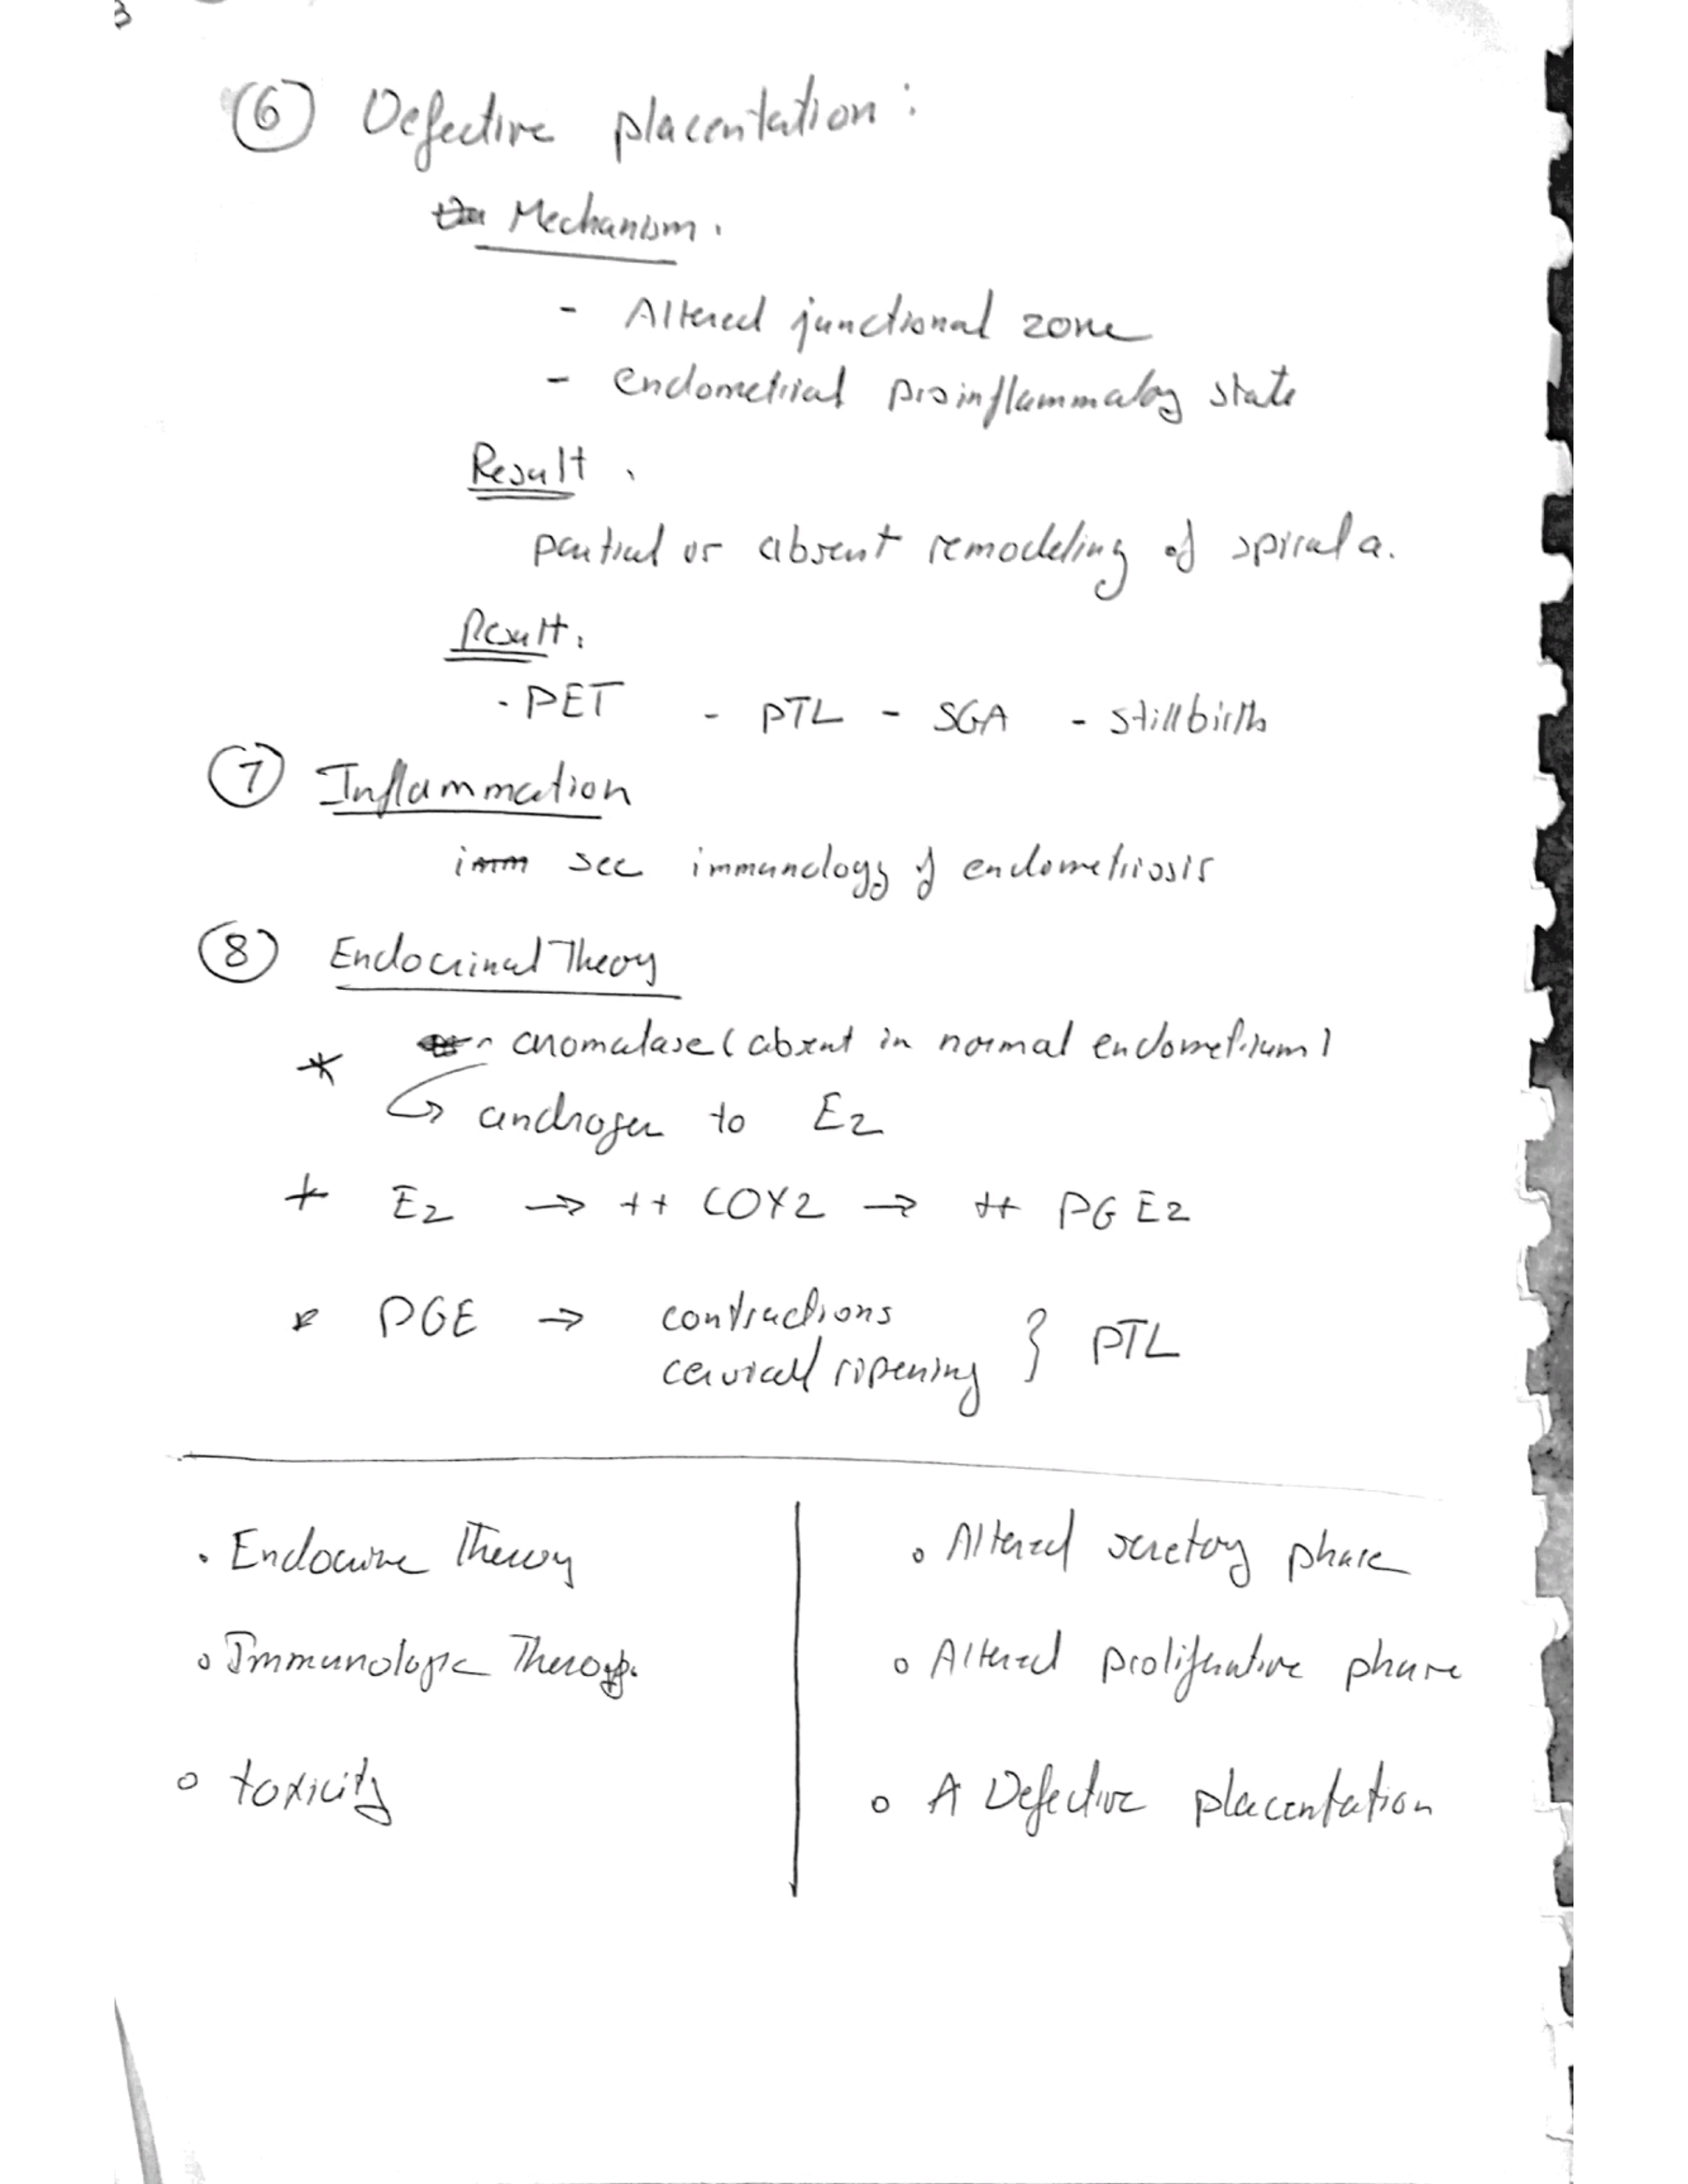 3
(6) Defective placentation:
Mechanism.
- Altered junctional zone
- endometrial proinflammatory state
Result.
partial or absent remodeling of spiral a.
Result:
- PET - PTL - SGA - stillbirth
(7) Inflammation
imm see immunology of endometriosis
(8) Endocrinal Theory
* aromatase (absent in normal endometrium)
↳ androgen to E2
* E2 → ++ COX2 → ++ PGE2
* PGE → contractions
cervical ripening } PTL
• Endocrine Theory
• Immunologic Theory.
• toxicity
• Altered secretory phase
• Altered proliferative phase
• A Defective placentation